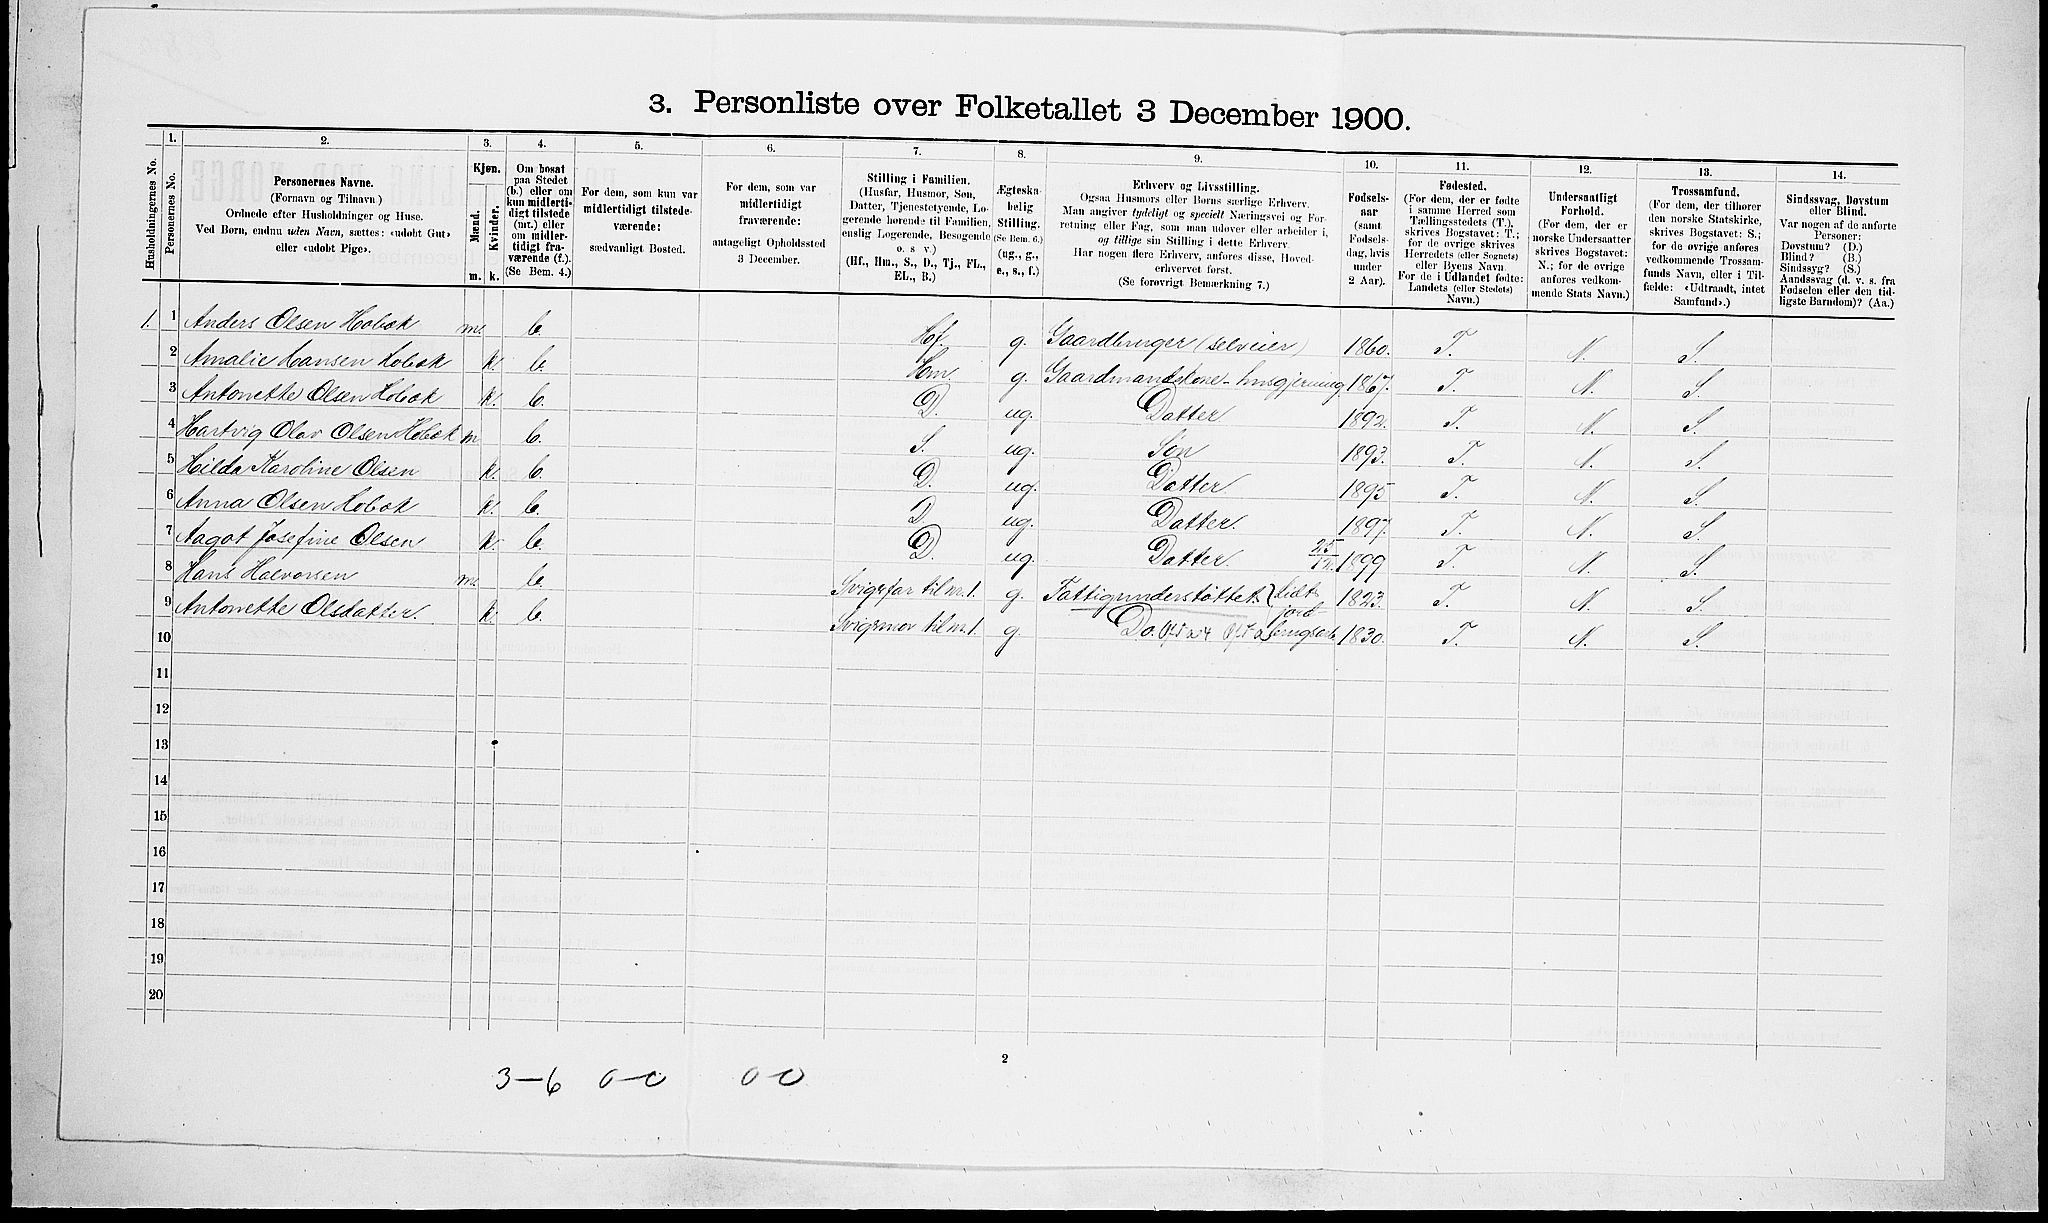 3. Personliste over Folketallet 3 December 1900.
Husholdningernes No.
1. Personernes No.
2. Personernes Navne. (Fornavn og Tilnavn) Ordnede efter Husholdninger og Huse. Ved Børn, endnu uden Navn, sættes: «udøbt Gut» eller «udøbt Pige».
3. Kjøn. Mænd. m. Kvinder. k.
4. Om bosat paa Stedet (b.) eller om kun midlertidigt tilstede (mt.) eller om midlertidigt fraværende (f.). (Se Bem. 4.)
5. For dem, som kun var midlertidigt tilstedeværende: sædvanligt Bosted.
6. For dem, som var midlertidigt fraværende: antageligt Opholdssted 3 December.
7. Stilling i Familien. (Husfar, Husmor, Søn, Datter, Tjenestetyende, Logerende hørende til Familien, enslig Logerende, Besøgende o. s. v.) (Hf., Hm., S., D., Tj., FL., EL., B.)
8. Ægteskabelig Stilling. (Se Bem. 6.) (ug., g., e., s., f.)
9. Erhverv og Livsstilling. Ogsaa Husmors eller Børns særlige Erhverv. Man angiver tydeligt og specielt Næringsvei og Forretning eller Fag, som man udøver eller arbeider i, og tillige sin Stilling i dette Erhverv. Har nogen flere Erhverv, anføres disse, Hovederhvervet først. (Se forøvrigt Bemærkning 7.)
10. Fødselsaar (samt Fødselsdag, hvis under 2 Aar).
11. Fødested. (For dem, der er fødte i samme Herred som Tællingsstedets (T.), skrives Bogstavet: T.; for de øvrige skrives Herredets (eller Sognets) eller Byens Navn. For de i Udlandet fødte: Landets (eller Stedets) Navn.)
12. Undersaatligt Forhold. (For dem, der er norske Undersaatter skrives Bogstavet: N.; for de øvrige anføres vedkommende Stats Navn.)
13. Trossamfund. (For dem, der tilhører den norske Statskirke, skrives Bogstavet: S.; for de øvrige anføres vedkommende Trossamfunds Navn, eller i Tilfælde: «Udtraadt, intet Samfund».)
14. Sindssvag, Døvstum eller Blind. Var nogen af de anførte Personer: Døvstum? (D.) Blind? (B.) Sindssyg? (S.) Aandssvag (d. v. s. fra Fødselen eller den tidligste Barndom)? (Aa.)
1. 1 Anders Olsen Hobæk m. b. Hf. g. Gaardbruger (selveier) 1860. T. N. S.
2 Amalie Hansen Hobæk k. b. Hm. g. Gaardmandskone - husgjerning 1867. T. N. S.
3 Antonette Olsen Hobæk k. b. D. ug. Datter 1892. T. N. S.
4 Hartvig Olav Olsen Hobæk m b. S. ug. Søn 1893. T. N. S.
5 Hilda Karoline Olsen k. b. D. ug. Datter 1895 T. N. S.
6 Anna Olsen Hobæk k. b. D. ug. Datter. 1897. T. N. S.
7 Aagot Josefine Olsen k. b. D. ug. Datter. 25/12. 1899 T. N. S.
8 Hans Halvorsen m. b. Svigefar til nr. 1. g. Fattigunderstøttet. lidt jord 1823. T. N. S.
9 Antonette Olsdatter. k. b. Svigemor til nr. 1. g. Do. 1830. T. N. S.
10
11
12
13
14
15
16
17
18
19
20
2
3-6 0-0 0-0